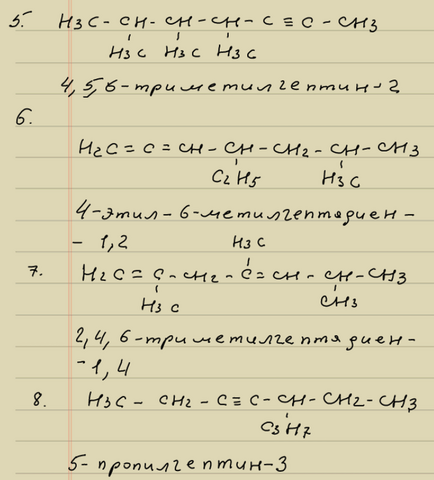 5. H3C - CH - CH - CH - C ≡ C - CH3
H3C H3C H3C
4, 5, 6-триметилгептин-2
6.
H2C = C = CH - CH - CH2 - CH - CH3
C2H5 H3C
4-этил-6-метилгептадиен-
- 1,2
H3C
7. H2C = C - CH2 - C = CH - CH - CH3
H3C CH3
2, 4, 6-триметилгептадиен-
-1, 4
8. H3C - CH2 - C ≡ C - CH - CH2 - CH3
C3H7
5-пропилгептин-3